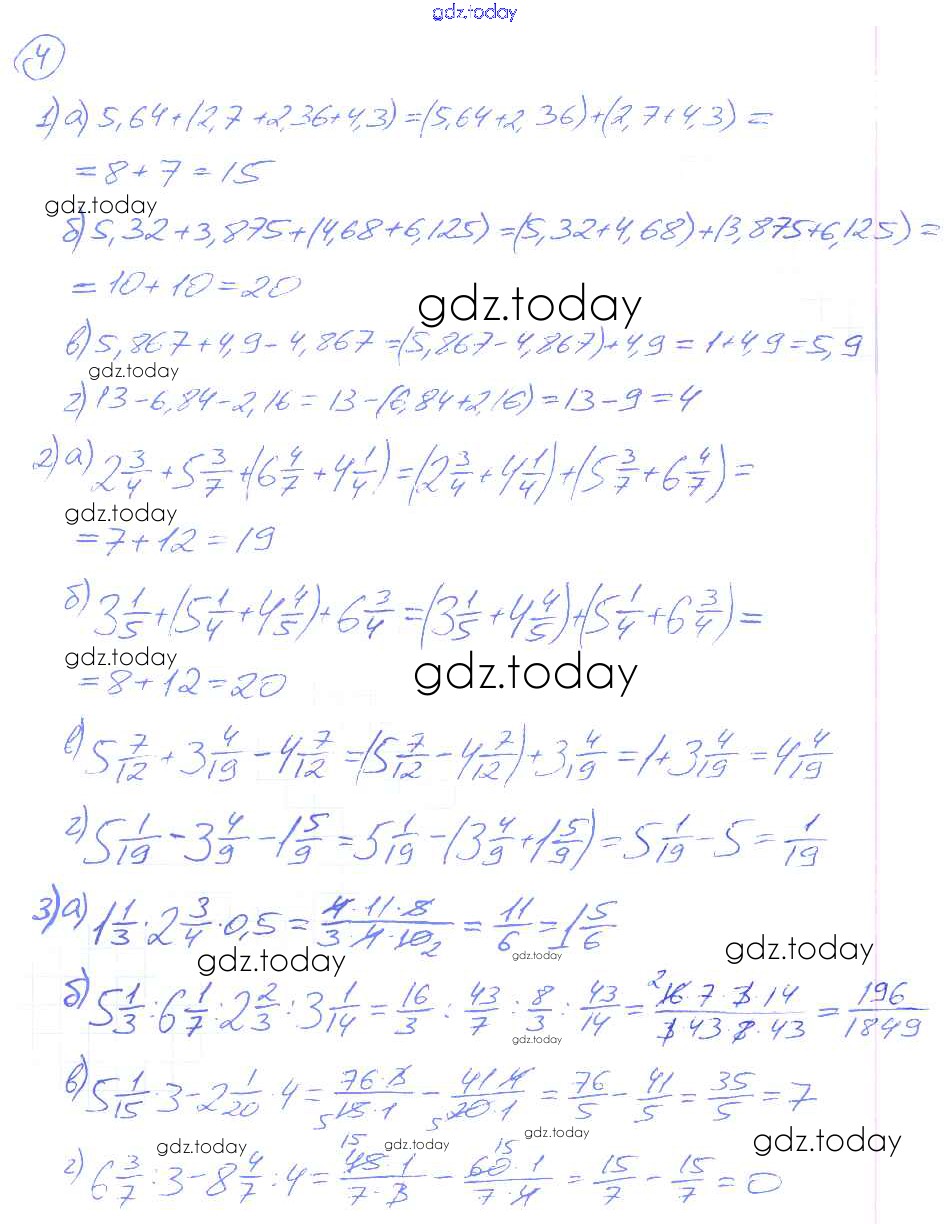 gdz.today
4
1) а) 5,64+(2,7+2,36+4,3)=(5,64+2,36)+(2,7+4,3)=
=8+7=15
gdz.today
б) 5,32+3,875+(4,68+6,125)=(5,32+4,68)+(3,875+6,125)=
=10+10=20
gdz.today
в) 5,867+4,9-4,867=(5,867-4,867)+4,9=1+4,9=5,9
gdz.today
г) 13-6,84-2,16=13-(6,84+2,16)=13-9=4
2) а) 2 3/4 + 5 3/7 + (6 4/7 + 4 1/4) = (2 3/4 + 4 1/4) + (5 3/7 + 6 4/7) =
gdz.today
=7+12=19
б) 3 1/5 + (5 1/4 + 4 4/5) + 6 3/4 = (3 1/5 + 4 4/5) + (5 1/4 + 6 3/4) =
gdz.today gdz.today
=8+12=20
в) 5 7/12 + 3 4/19 - 4 7/12 = (5 7/12 - 4 7/12) + 3 4/19 = 1 + 3 4/19 = 4 4/19
г) 5 1/19 - 3 4/9 - 1 5/9 = 5 1/19 - (3 4/9 + 1 5/9) = 5 1/19 - 5 = 1/19
3) а) 1 1/3 · 2 3/4 · 0,5 = 4·11·5/3·4·10 2 = 11/6 = 1 5/6
gdz.today gdz.today gdz.today
б) 5 1/3 : 6 1/7 : 2 2/3 : 3 1/14 = 16/3 : 43/7 : 8/3 : 43/14 = 2 16·7·3·14/3·43·8·43 = 196/1849
gdz.today
в) 5 1/15 · 3 - 2 1/20 · 4 = 76·3/5 15·1 - 41·4/5 20·1 = 76/5 - 41/5 = 35/5 = 7
gdz.today gdz.today gdz.today gdz.today
г) 6 3/7 : 3 - 8 4/7 : 4 = 15 45·1/7·3 - 15 60·1/7·4 = 15/7 - 15/7 = 0